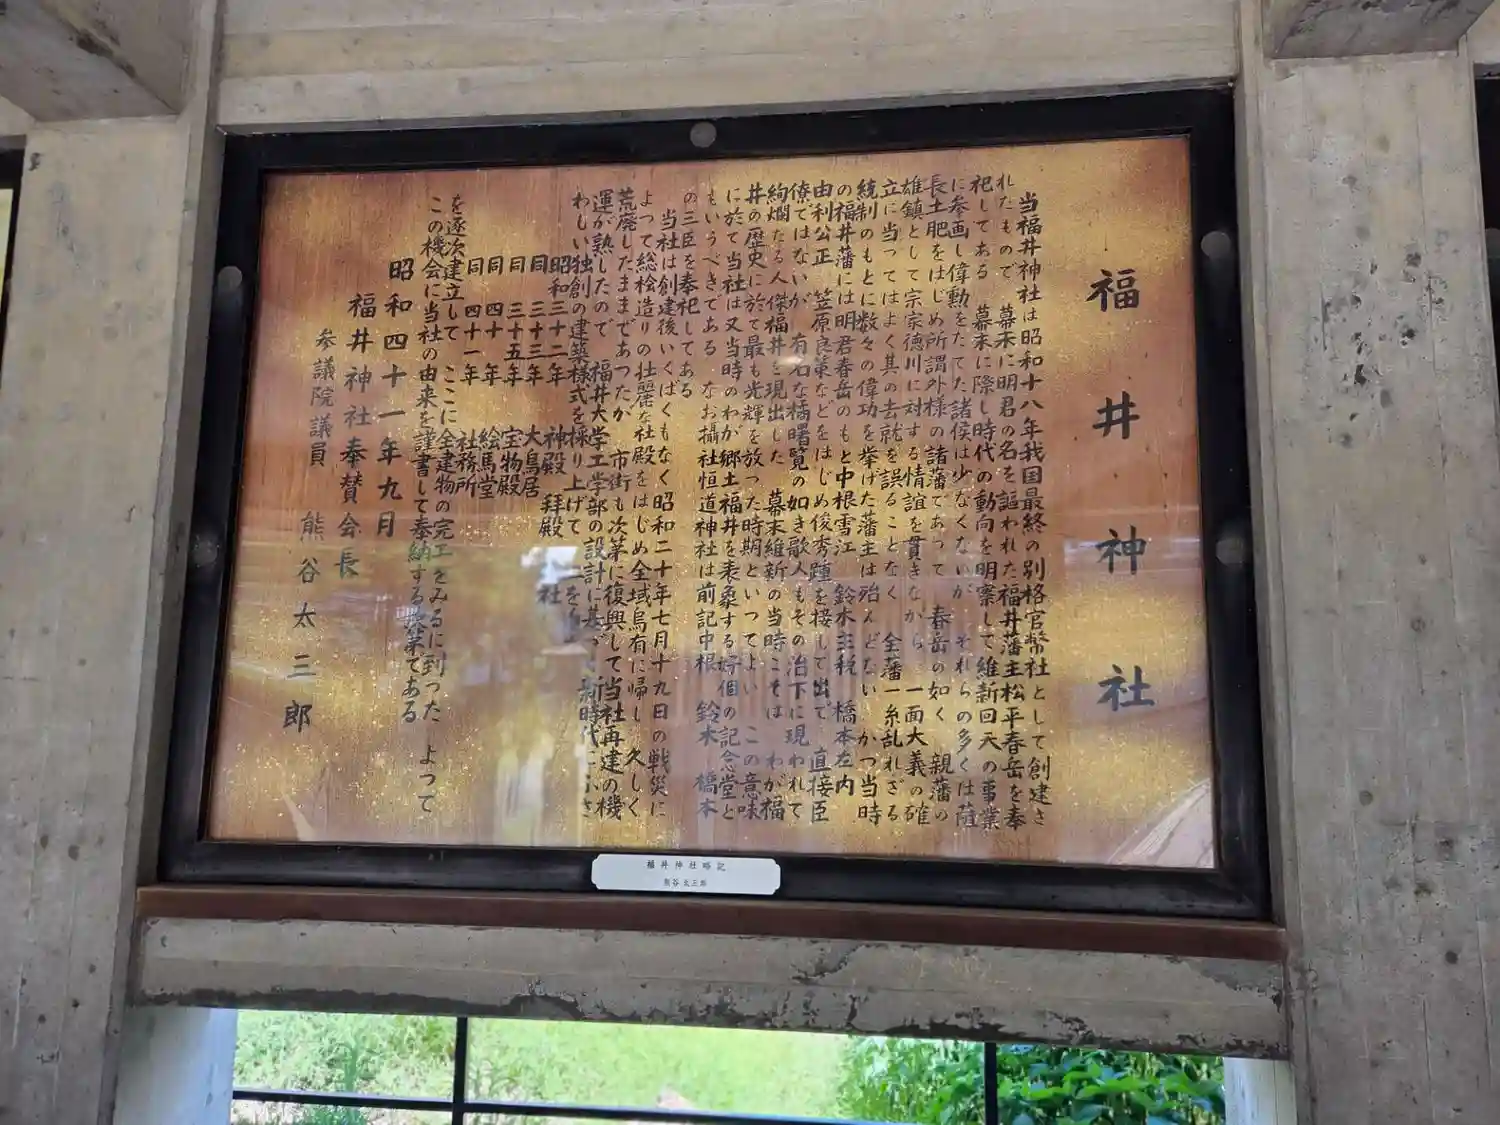 福井神社
当福井神社は昭和十八年我国最終の別格官幣社として創建さ
れたもので 幕末に明君の名を謳われた福井藩主松平春岳を奉
祀してある 幕末に際し時代の動向を明察して維新回天の事業
に参画し偉勲をたてた諸侯は少なくないが それらの多くは薩
長土肥をはじめ所謂外様の諸藩であって 春岳の如く 親藩の
雄鎮として宗家徳川に対する情誼を貫きながら 一面大義の確
立に当ってはよく其の去就を誤ることなく 全藩一糸乱れざる
統制のもとに数々の偉功を挙げた藩主は殆んどない かつ当時
の福井藩には明君春岳のもと中根雪江 鈴木主税 橋本左内
由利公正 笠原良策などをはじめ俊秀踵を接して出で 直接臣
僚ではないが 有名な橘曙覧の如き歌人もその治下に現われて
絢爛たる人傑福井を現出した 幕末維新の当時こそは わが福
井の歴史に於て最も光輝を放った時期といってよい この意味
に於て当社は又当時のわが郷土福井を表象する好個の記念堂と
もいうべきである なお攝社恒道神社は前記中根 鈴木 橋本
の三臣を奉祀してある
当社は創建後いくばくもなく昭和二十年七月十九日の戦災に
よって総桧造りの壮麗な社殿をはじめ全域烏有に帰し 久しく
荒廃したままであったが 市街も次第に復興して当社再建の機
運が熟したので 福井大学工学部の設計に基づき新時代にふさ
わしい独創の建築様式を採り上げて
昭和三十二年 神殿 拝殿
同 三十三年 大鳥居
同 三十五年 宝物殿
同 四十年 絵馬堂
同 四十一年 社務所
を逐次建立して ここに全建物の完工をみるに到った よって
この機会に当社の由来を謹書して奉納する次第である
昭和四十一年九月
福井神社奉賛会長
参議院議員 熊谷太三郎
福井神社略記
熊谷太三郎